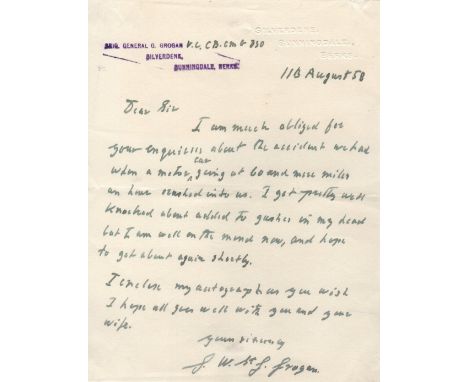 SILVERDENE,
SUNNINGDALE,
BERKS.
BRIG. GENERAL G. GROGAN V.C, C.B. CMG DSO
SILVERDENE,
SUNNINGDALE, BERKS.
11th August 50
Dear Sir
I am much obliged for
your enquiries about the accident we had
when a motor car going at 60 and more miles
an hour crashed into us. I got pretty well
knocked about added to gashes in my head
but I am well on the mend now, and hope
to get about again shortly.
I enclose my autograph as you wish
I hope all goes well with you and your
wife.
Yours sincerely
G. W. St G. Grogan.